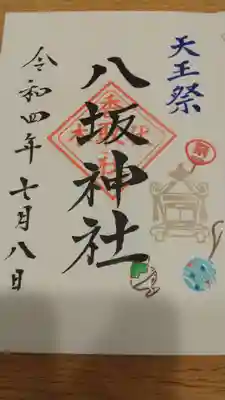 天王祭
祭
八坂神社
令和四年七月八日